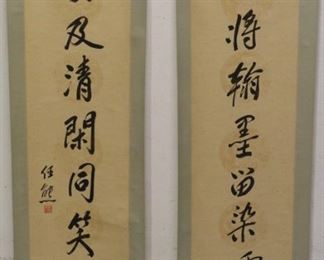 將翰墨留染
及清閑同笑
任熊